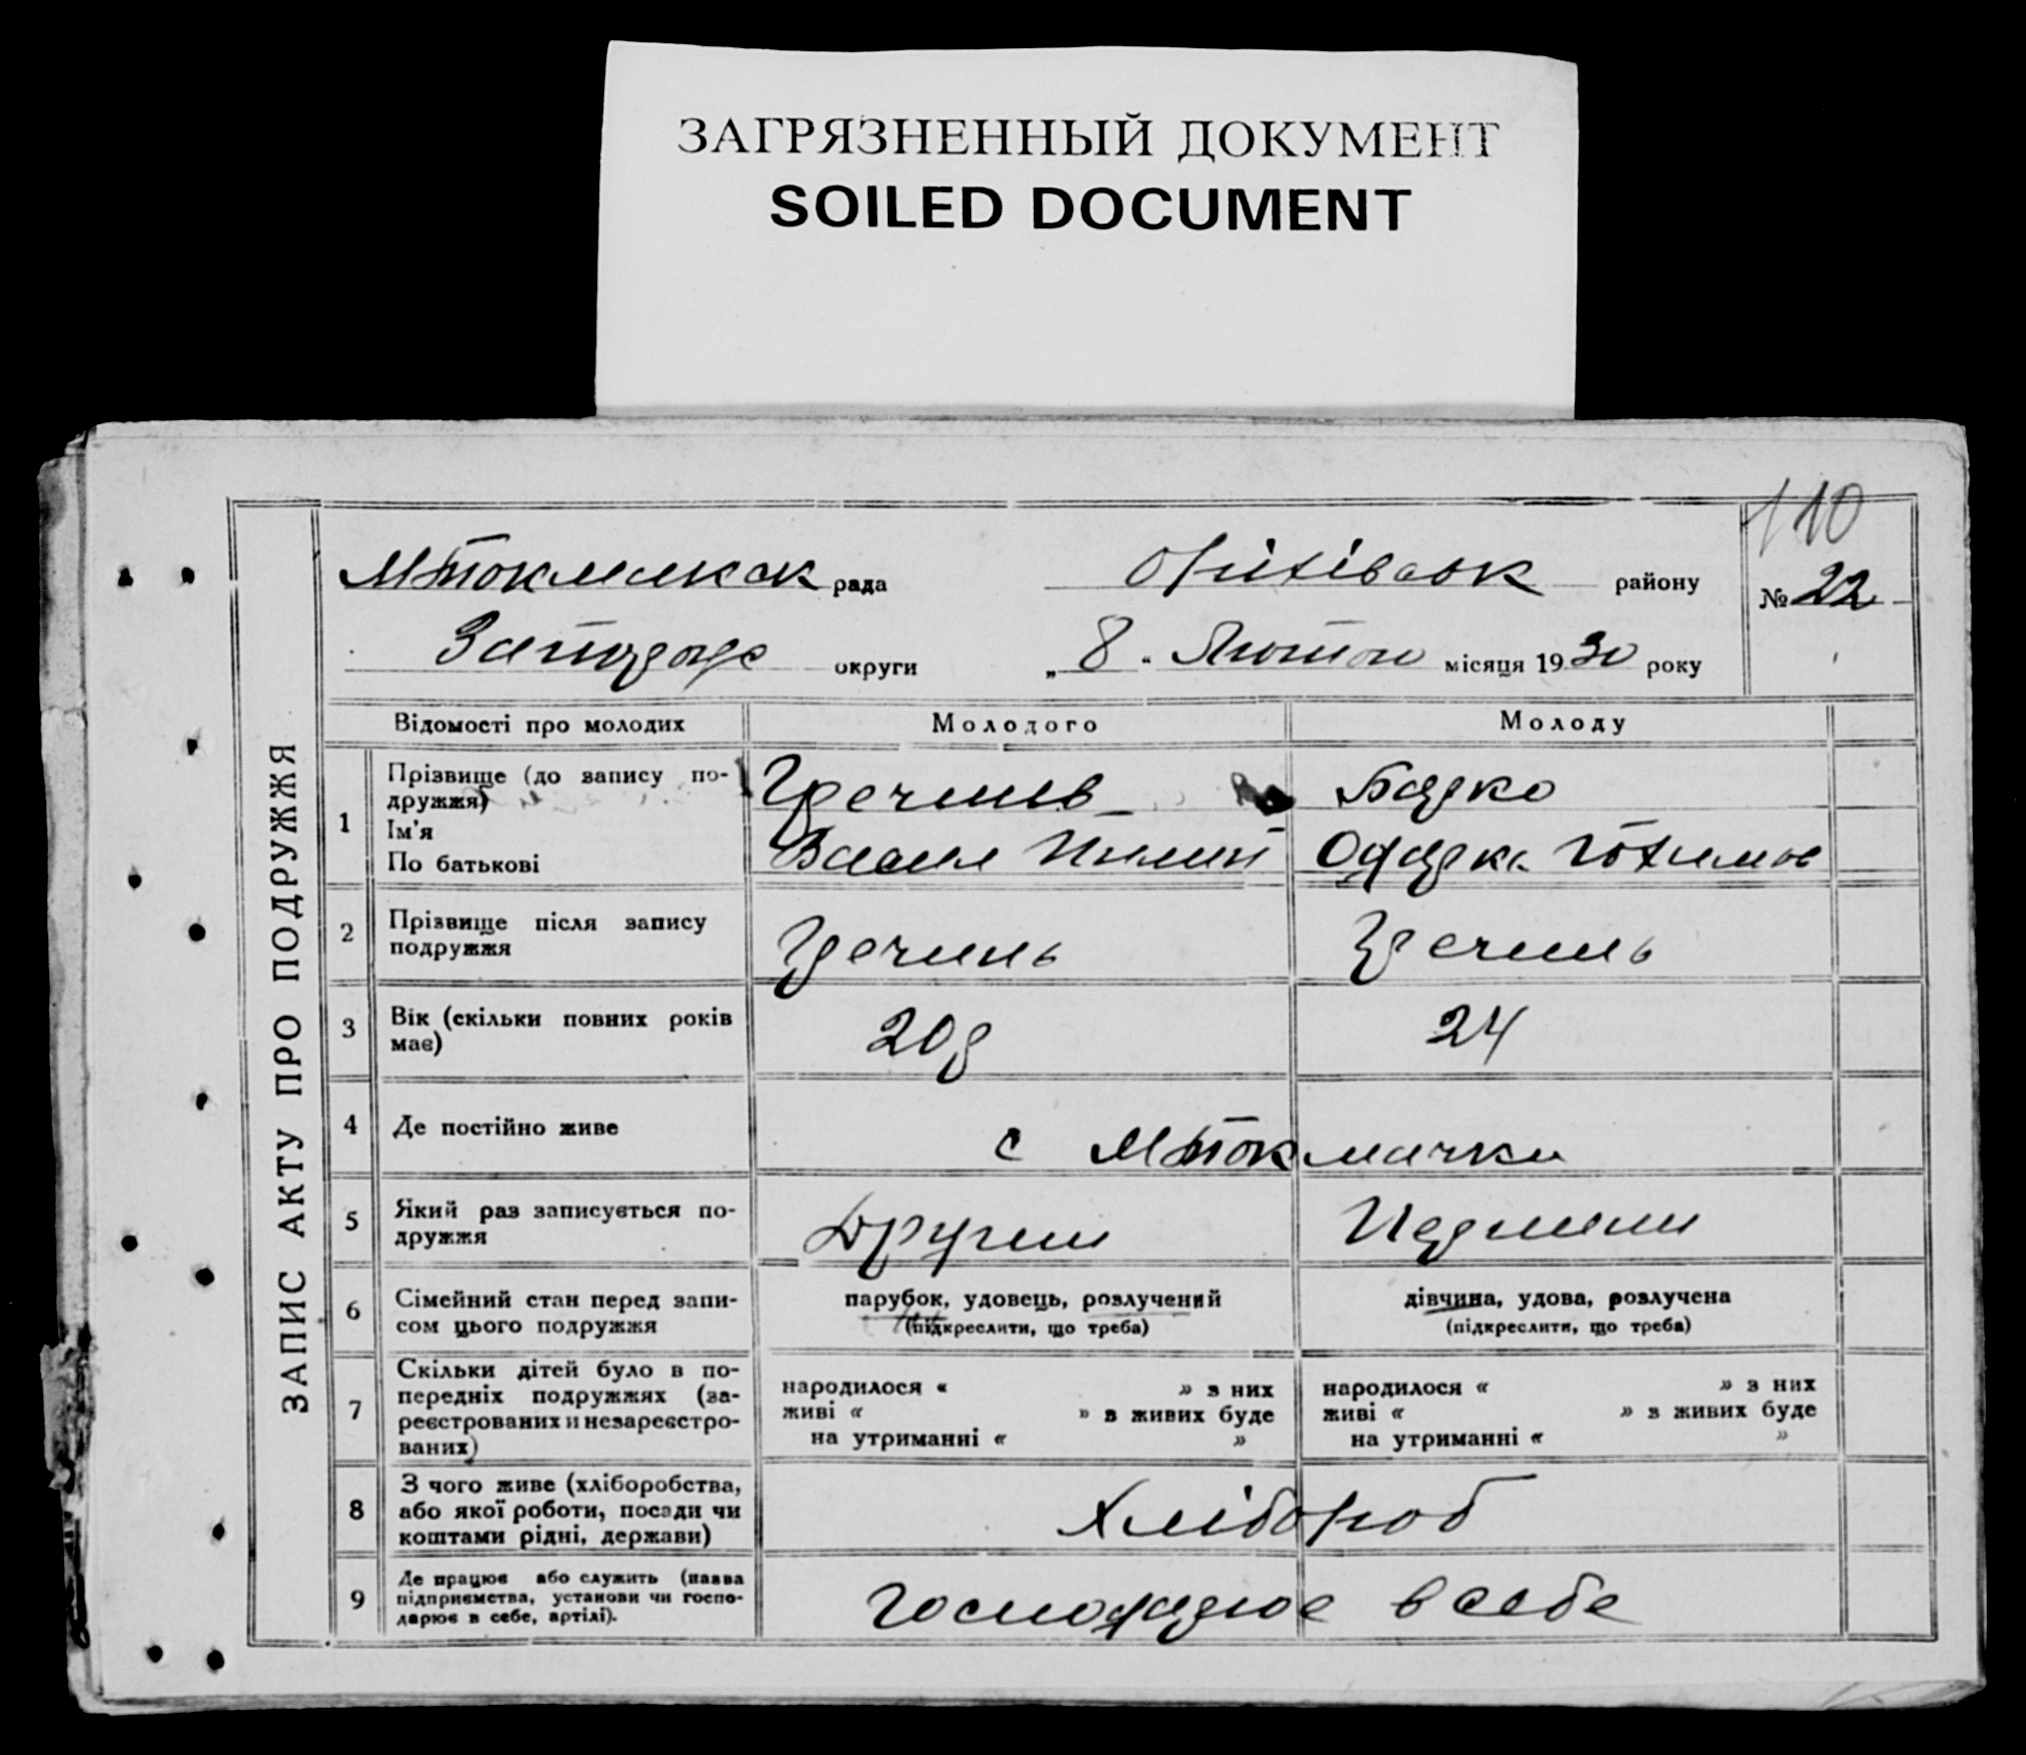 ЗАГРЯЗНЕННЫЙ ДОКУМЕНТ
SOILED DOCUMENT
110
ЗАПИС АКТУ ПРО ПОДРУЖЖЯ
МТокмакск рада Оріхівськ району № 22
Запорізс округи „ 8 " Лютого місяця 1930 року
Відомості про молодих Молодого Молоду
1 Прізвище (до запису подружжя) Гречинь
Ім'я
По батькові Васил
2 Прізвище після запису подружжя Гречинь Гречинь
3 Вік (скільки повних років має) 20р 24
4 Де постійно живе с МТокмачки
5 Який раз записується подружжя Другий Перший
6 Сімейний стан перед записом цього подружжя парубок, удовець, розлучений дівчина, удова, розлучена
(підкреслити, що треба) (підкреслити, що треба)
7 Скільки дітей було в попередніх подружжях (зареєстрованих и незареєстрованих)
народилося « » з них народилося « » з них
живі « » в живих буде живі « » з живих буде
на утриманні « » на утриманні « »
8 З чого живе (хліборобства, або якої роботи, посади чи коштами рідні, держави) Хлібороб
9 Де працює або служить (назва підприємства, установи чи господарює в себе, артілі). Господарює в себе